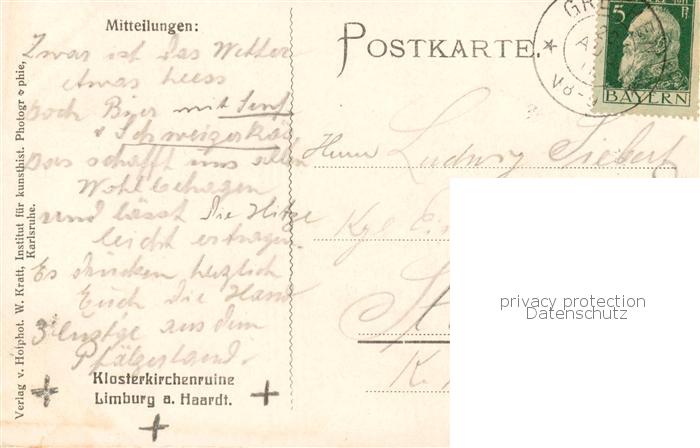 Mitteilungen:
Zwar ist das Wetter
etwas heess
Doch Bier mit Senf
& Schweizerkäs,
Das schafft uns allen
Wohlbehagen
und lässt die Hitze
leicht ertragen.
Es drücken herzlich
Euch die Hand
3 lustge aus dem
Pfälzerland.
Klosterkirchenruine
Limburg a. Haardt.
Verlag v. Hofphot. W. Kratt, Institut für kunsthist. Photographie,
Karlsruhe.
POSTKARTE.
GRE
5
BAYERN
Herrn Ludwig Siebert
Kgl.
St
K.
privacy protection
Datenschutz